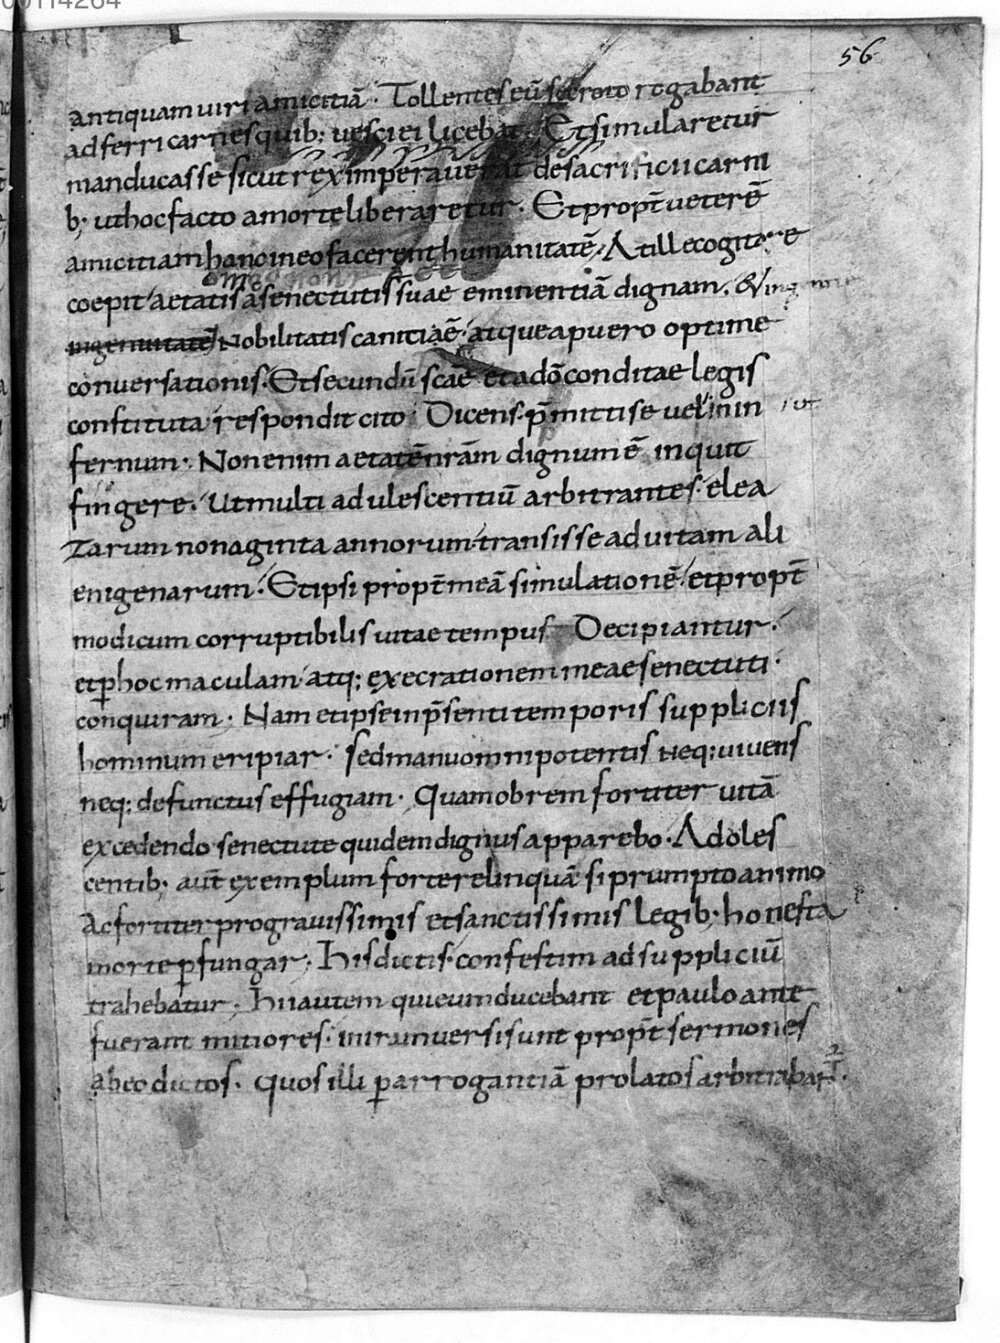 56
antiquam uiri amicitiā · Tollentes eū secreto rogabant
adferri carnes quib; uesci ei licebat · Et simularetur
manducasse sicut rex imperauerat de sacrificii carni
b; ut hoc facto a morte liberaretur · Et propt̄ ueterē
amicitiam hanc in eo facerent humanitatē · At ille cogitare
coepit aetatis a senectutis suae eminentiā dignam · &
ingenuitatē Nobilitatis canitiāē · atque a puero optime
conuersationis · Et secundū scāē et a dō conditae legis
constituta respondit cito Dicens · p̄mitti se uelin in
fernum · Non enim aetatē nr̄am dignum ē inquit
fingere · Ut multi adulescentiū arbitrantes · elea
zarum nonaginta annorum transisse ad uitam ali
enigenarum · Et ipsi propt̄ meā simulationē et propt̄
modicum corruptibilis uitae tempus Decipiantur ·
et ꝑ hoc maculam atq; execrationem meae senectuti ·
conquiram · Nam et ipse in p̄senti temporis suppliciis
hominum eripiar · sed manu omnipotentis neq; uiuens
neq; defunctus effugiam · Quamobrem fortiter uitā
excedendo senectute quidem dignus apparebo · Adoles
centib; aut̄ exemplum forte relinquā si prumpto animo
Ac fortiter pro grauissimis et sanctissimis legib; honesta
morte ꝑfungar · His dictis · confestim ad suppliciū
trahebatur · Hii autem qui eum ducebant et paulo ante
fuerant mitiores · in iram uersi sunt propt̄ sermones
ab eo dictos · Quos illi ꝑ arrogantiā prolatos arbitrabant ·